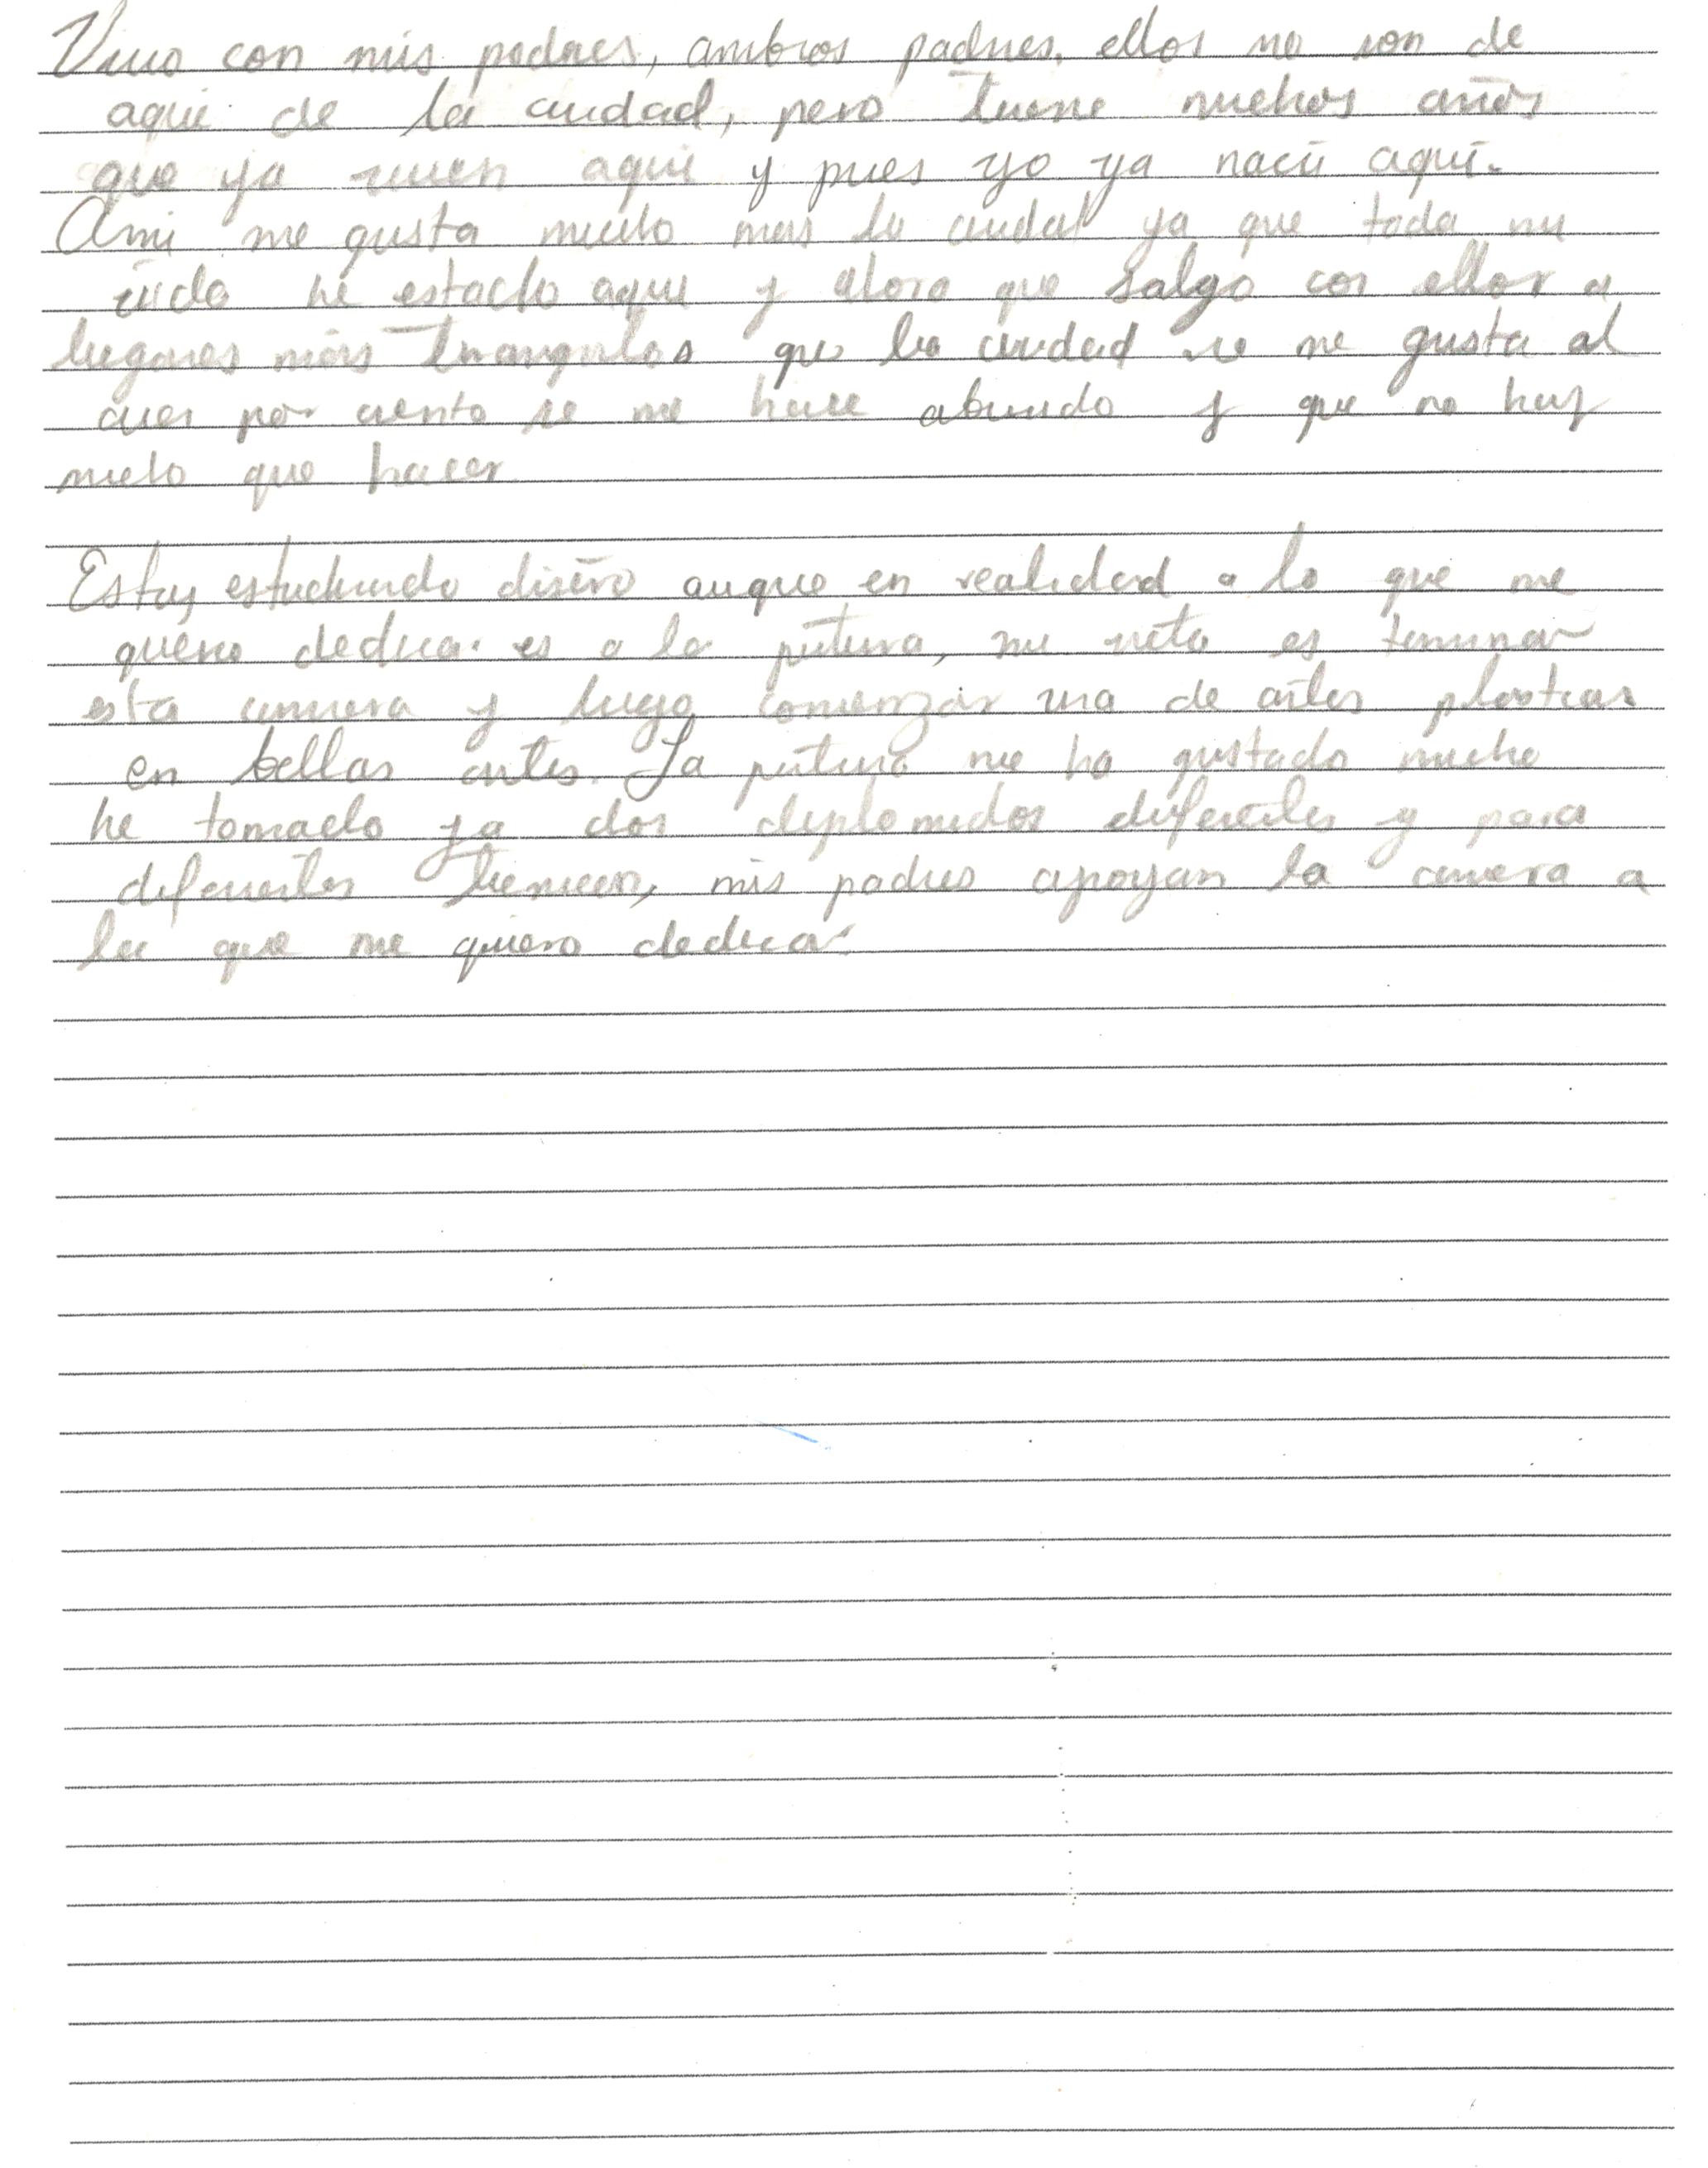 Vivo con mis padres, ambos padres, ellos no son de
aqui de la ciudad, pero tiene muchos años
que ya viven aqui y pues yo ya naci aqui.
Ami me gusta mucho mas la ciudad ya que toda mi
vida he estado aqui y ahora que salgo con ellos a
lugares más tranquilos que la ciudad no me gusta al
cien por ciento se me hace aburrido y que no hay
mucho que hacer
Estoy estudiando diseño auque en realidad a lo que me
quiero dedicar es a la pintura, mi meta es terminar
esta carrera y luego comenzar una de artes plasticas
en bellas artes. La pintura me ha gustado mucho
he tomado ya dos diplomados diferentes y para
diferentes tecnicas, mis padres apoyan la carrera a
la que me quiero dedicar